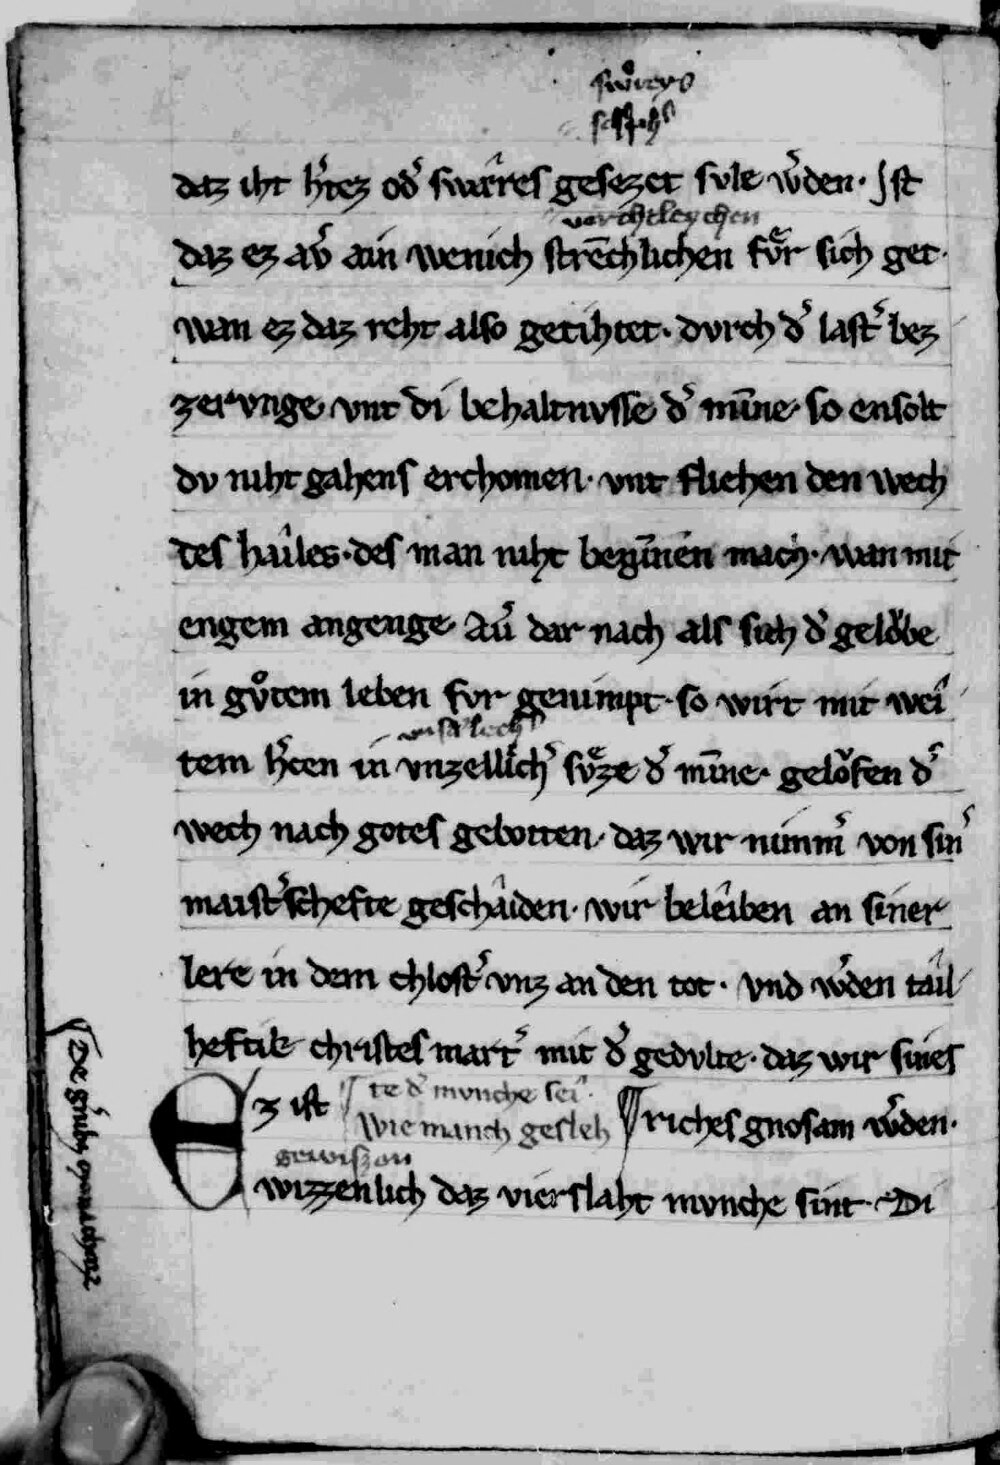 daz iht h̓tez od̓ swærres gesezet svle w̓den. Jst
vorchtleychen
daz ez av̓ ain wenich strēchlichen fvͤr sich get.
wan ez daz reht also getihtet. dvrch d̓ last̓ bez
zervnge vnt di behaltnvsse d̓ mīne. so ensolt
dv niht gahens erchomen. vnt fliehen den wech
des hâiles. des man niht begīnen mach. wan mit
engem angenge Av̓ dar nach als sich d̓ gelŏbe
in gvͦtem leben fvr genimpt. so wirt mit wei
tem h̓cen in vnzellich̓ svͤze d̓ mīne. gelŏfen d̓
wech nach gotes gebotten. daz wir nimm̓ von sin̓
maist̓schefte geschâiden. wir belêiben an siner
lere in dem chlost̓ vnz an den tot. vnd w̓den tâil
heftik christes mart̓ mit d̓ gedvlte. daz wir sines
te d̓ mvnche sei.
Ez ist Wie manch gesleh ¶ riches gnosam w̓den.
gewiszen
wizzenlich daz vierslaht mvnche sint. Di